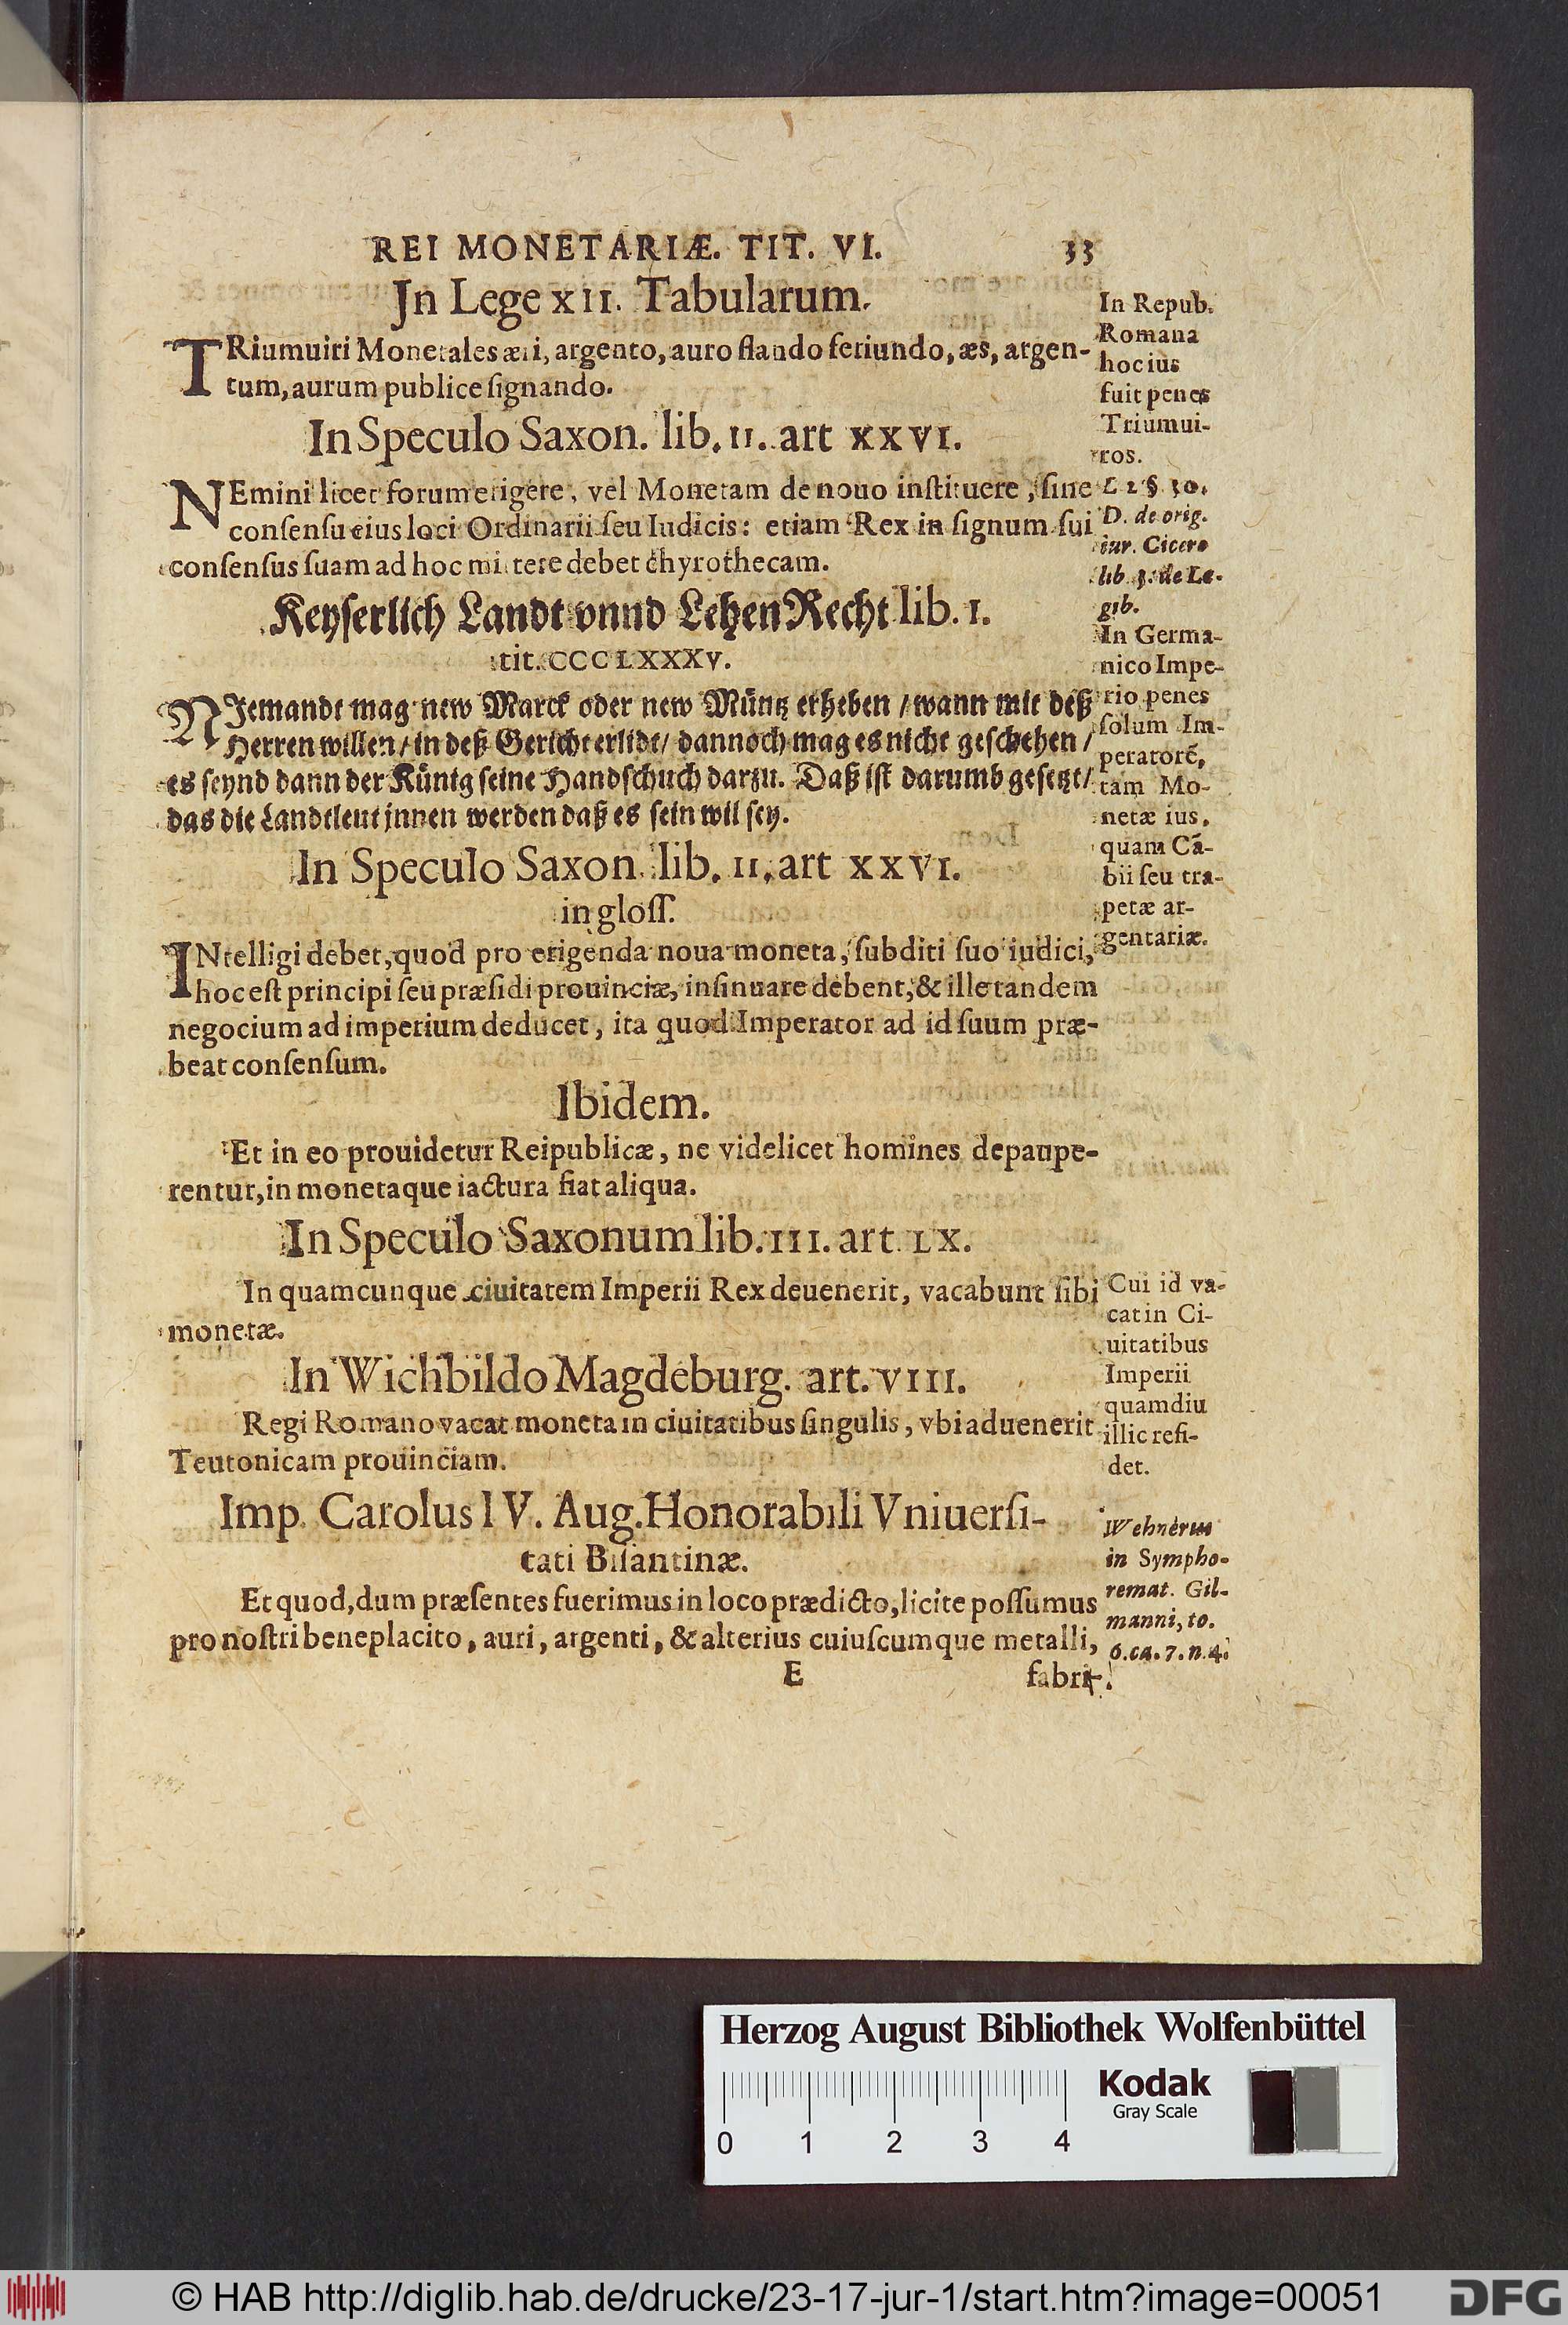 REI MONETARIÆ. TIT. VI. 33
Jn Lege XII. Tabularum.
TRiumuiri Monetales æri, argento, auro flando feriundo, æs, argen-
tum, aurum publice ſignando.
In Speculo Saxon. lib. II. art XXVI.
NEmini licet forum erigere, vel Monetam de nouo inſtituere, ſine
conſenſu eius loci Ordinarii ſeu Iudicis: etiam Rex in ſignum ſui
conſenſus ſuam ad hoc mittere debet chyrothecam.
Keyſerlich Landt vnnd Lehen Recht lib. I.
tit. CCCLXXXV.
NIemandt mag new Marck oder new Müntz erheben / wann mit deß
Herren willen / in deß Gericht erlidt / dannoch mag es nicht geſchehen /
es ſeynd dann der Künig ſeine Handſchuch darzu. Daß iſt darumb geſetzt /
das die Landtleut jnnen werden daß es ſein wil ſey.
In Speculo Saxon. lib. II. art XXVI.
in gloſſ.
INtelligi debet, quod pro erigenda noua moneta, ſubditi ſuo iudici,
hoc eſt principi ſeu præſidi prouinciæ, inſinuare debent, & ille tandem
negocium ad imperium deducet, ita quod Imperator ad id ſuum præ-
beat conſenſum.
Ibidem.
Et in eo prouidetur Reipublicæ, ne videlicet homines depaupe-
rentur, in monetaque iactura fiat aliqua.
In Speculo Saxonum lib. III. art. LX.
In quamcunque ciuitatem Imperii Rex deuenerit, vacabunt ſibi
monetæ.
In Wichbildo Magdeburg. art. VIII.
Regi Romano vacat moneta in ciuitatibus ſingulis, vbi aduenerit
Teutonicam prouinciam.
Imp. Carolus IV. Aug. Honorabili Vniuerſi-
tati Biſantinæ.
Et quod, dum præſentes fuerimus in loco prædicto, licite poſſumus
pro noſtri beneplacito, auri, argenti, & alterius cuiuſcumque metalli,
E fabri-
In Repub.
Romana
hoc ius
fuit penes
Triumui-
ros.
L 2 §. 30.
D. de orig.
iur. Cicero
lib. 3. de Le-
gib.
In Germa-
nico Impe-
rio penes
ſolum Im-
peratorē,
tam Mo-
netæ ius,
quam Cā-
bii ſeu tra-
petæ ar-
gentariæ.
Cui id va-
cat in Ci-
uitatibus
Imperii
quamdiu
illic reſi-
det.
Wehnerus
in Sympho-
remat. Gil-
manni, to.
6. ca. 7. n. 4.
Herzog August Bibliothek Wolfenbüttel
Kodak
Gray Scale
0 1 2 3 4
© HAB http://diglib.hab.de/drucke/23-17-jur-1/start.htm?image=00051
DFG